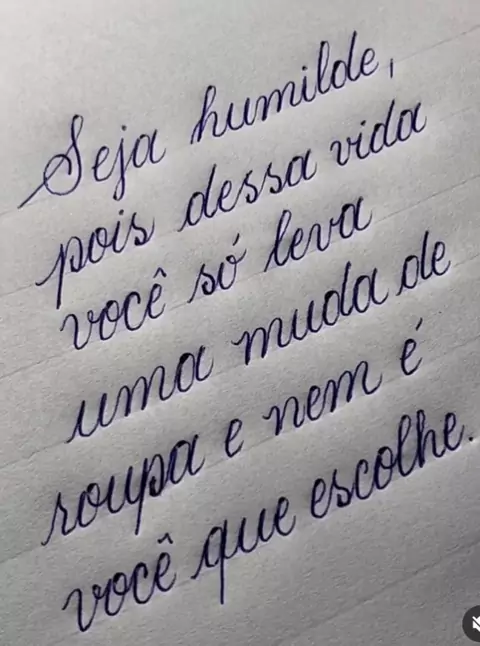 Seja humilde,
pois dessa vida
você só leva
uma muda de
roupa e nem é
você que escolhe.